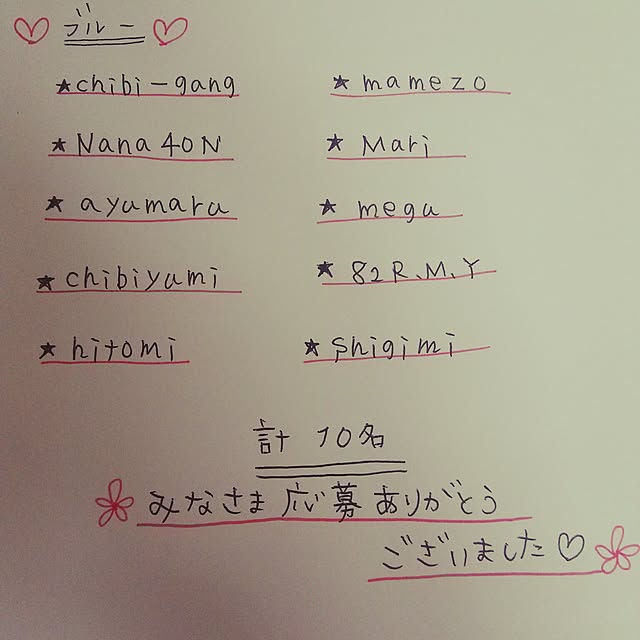 ♡ ブルー ♡
★chibi-gang ★mamezo
★Nana40N ★Mari
★ayumaru ★megu
★chibiyumi ★82R.M.Y
★hitomi ★shigimi
計 10名
みなさま 応募 ありがとう
ございました♡